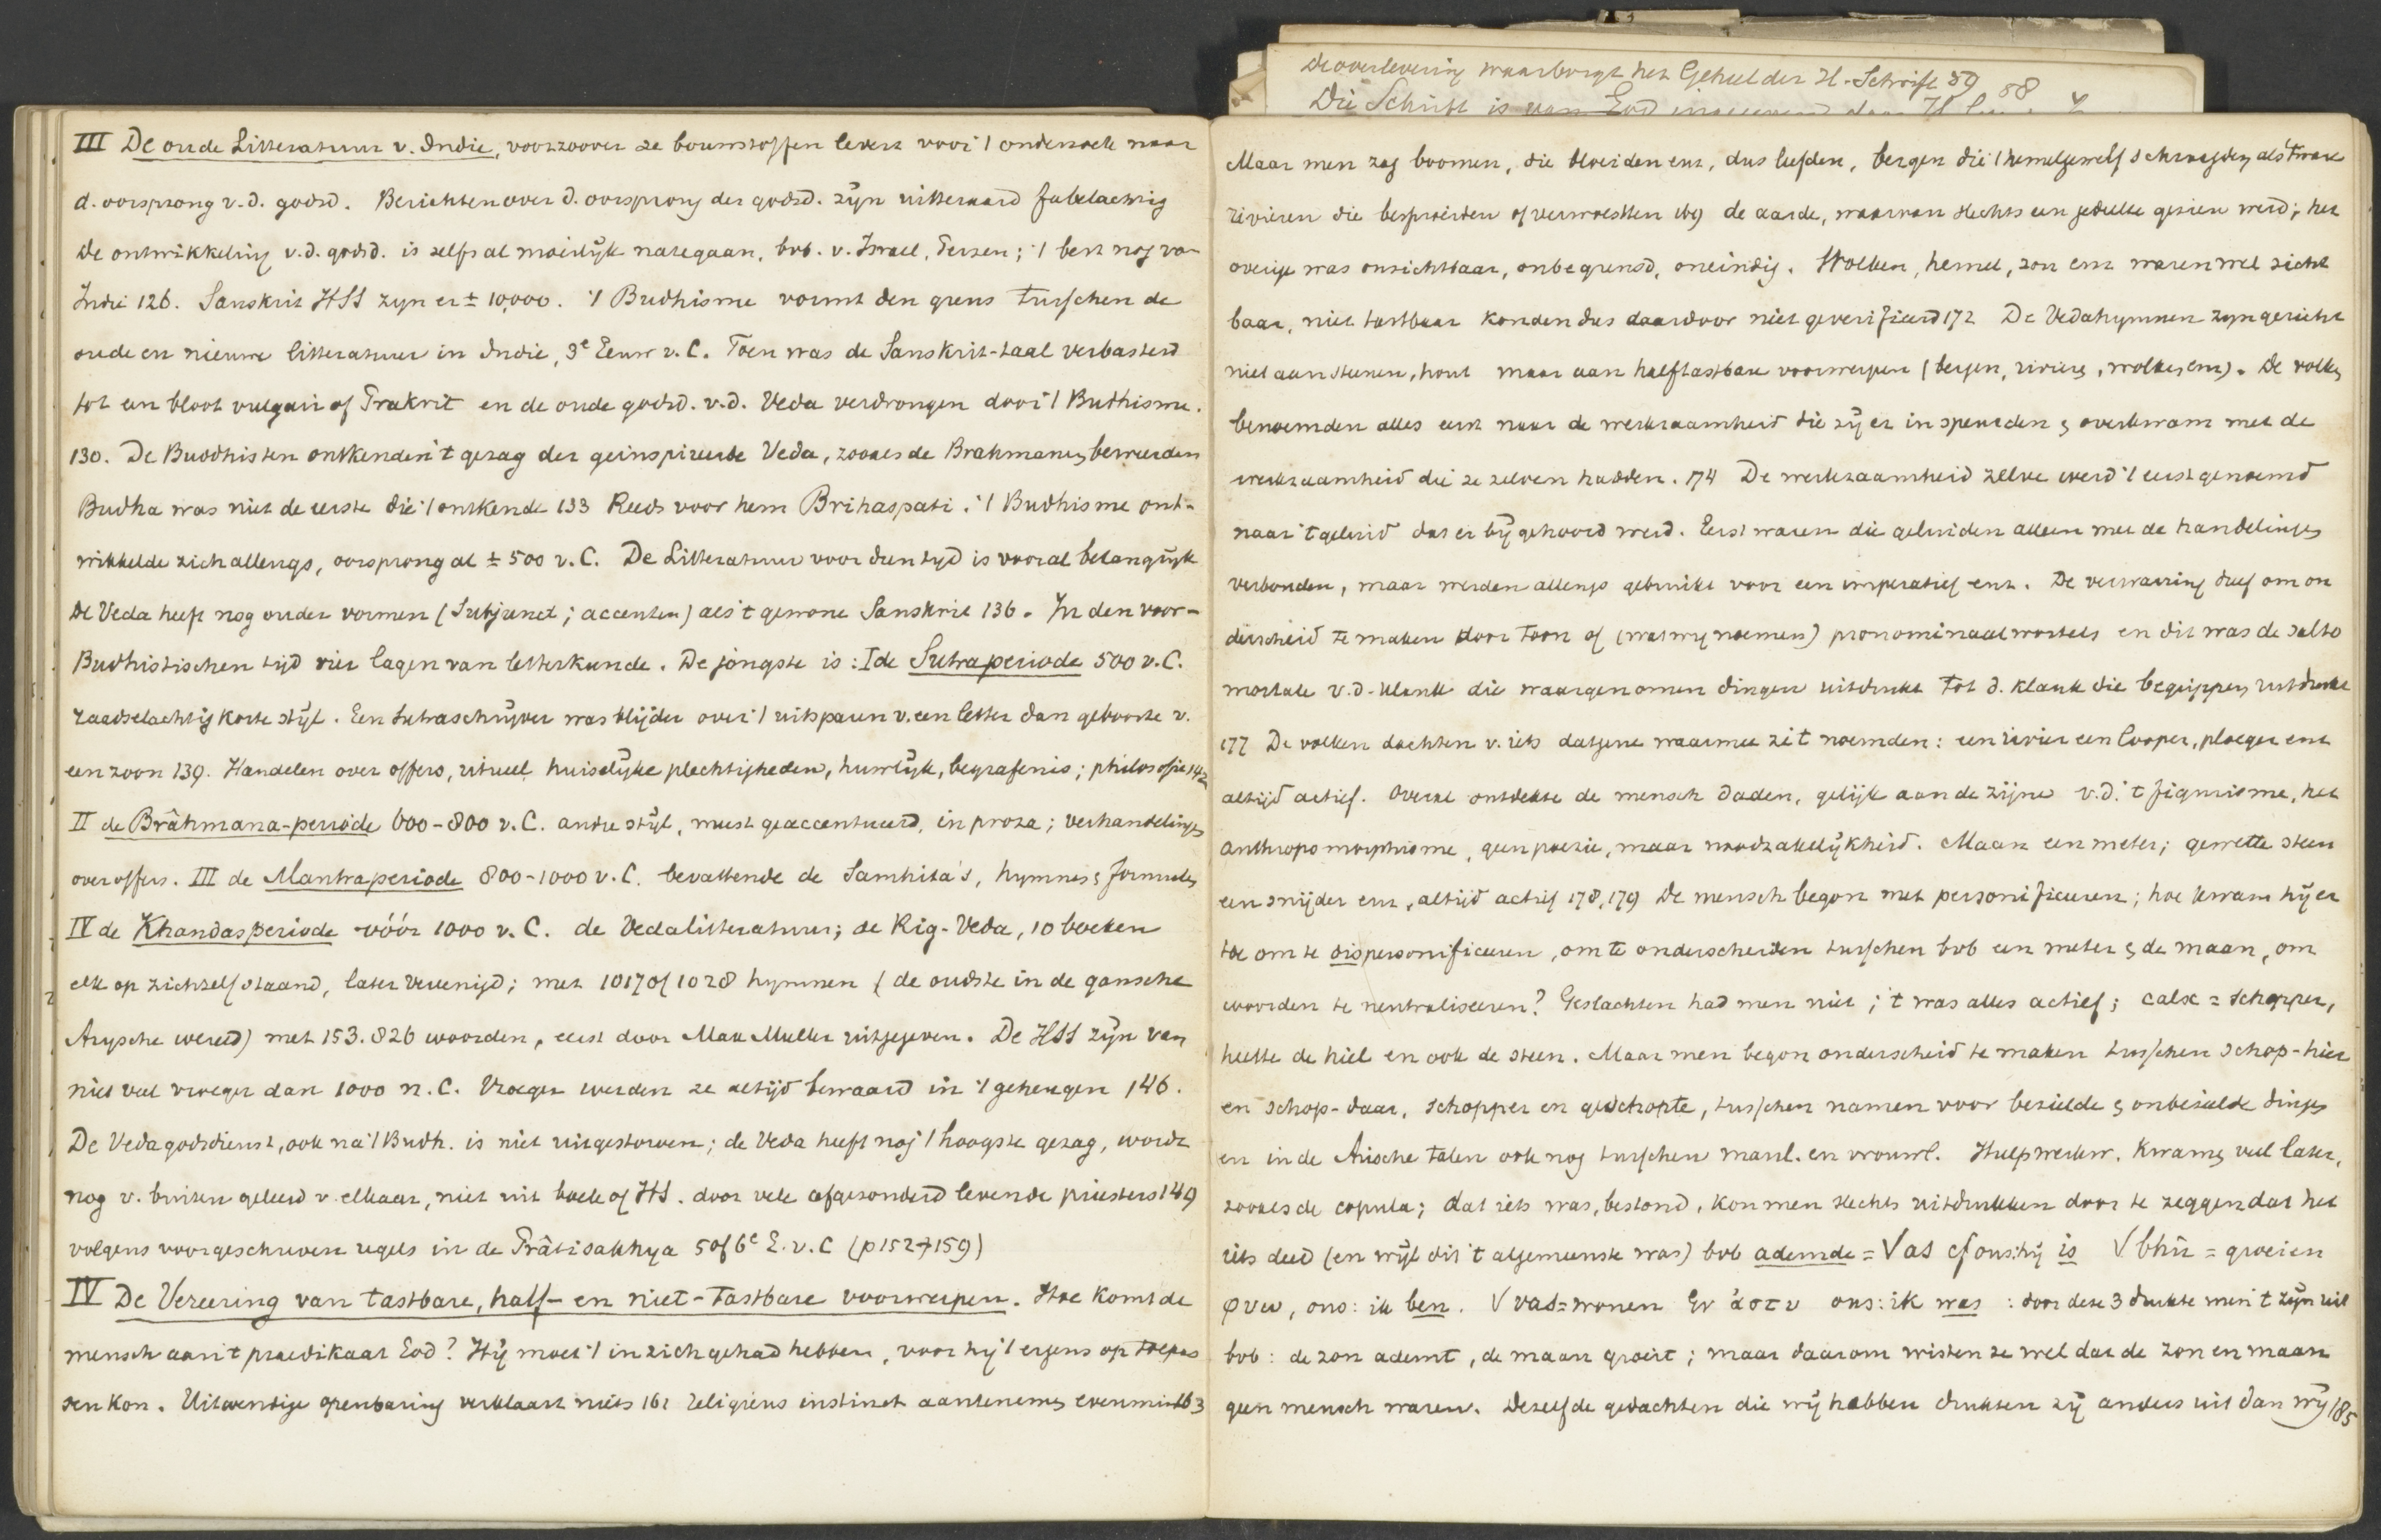 De overlevering waarborgt het Geheel der H. Schrift 59
58
Die Schrift is van God
III De oude Litteratuur v. Indie, voorzoover ze bouwstoffen levert voor 't onderzoek naar
d. oorsprong v.d. godsd. Berichten over d. oorsprong der godsd. zijn uitteraard fabelachtig
De ontwikkeling v.d. godsd. is zelfs al moeilijk nategaan, bvb. v. Israel, Perzen; 't best nog van
Indie 126. Sanskrit HSS zyn er ± 10,000. 't Budhisme vormt den grens tusschen de
oude en nieuwe litteratuur in Indie, 3e Eeuw v. C. Toen was de Sanskrit-taal verbasterd
tot een bloot vulgair of Prakrit en de oude godsd. v.d. Veda verdrongen door 't Budhisme.
130. De Buddhisten ontkenden 't gezag der geinspireerde Veda, zooals de Brahmanen beweerden
Budha was niet de eerste die 't ontkende 133 Reeds voor hem Brihaspati. 't Budhisme ont-
wikkelde zich allengs, oorsprong al ± 500 v. C. De Litteratuur voor dien tyd is vooral belangrijk
De Veda heeft nog ouder vormen (Subjunct; accenten) als 't gewone Sanskrit 136. In den voor-
Budhistischen tijd vier lagen van letterkunde. De jongste is: I de Sutraperiode 500 v. C.
raadselachtig korte stijl. Een Sutraschrijver was blijder over 't uitsparen v. een letter dan geboorte v.
een zoon 139. Handelen over offers, ritueel, huiselijke plechtigheden, huwlijk, begrafenis; philosofie 142
II de Brâhmana-periode 600-800 v. C. andre stijl, meest geaccentueerd, in proza; verhandelingen
over offers. III de Mantraperiode 800-1000 v. C. bevattende de Samhita's, hymnes & formules
IV de Khandasperiode vóór 1000 v. C. de Vedalitteratuur; de Rig-Veda, 10 boeken
elk op zichzelf staand, later vereenigd; met 1017 of 1028 hymnen (de oudste in de gansche
Arysche wereld) met 153.826 woorden, eerst door Max Muller uitgegeven. De HSS zijn van
niet veel vroeger dan 1000 n. C. Vroeger werden ze altijd bewaard in 't geheugen 146.
De Vedagodsdienst, ook na 't Budh. is niet uitgestorven; de Veda heeft nog 't hoogste gezag, wordt
nog v. buiten geleerd v. elkaar, niet uit boek of HS. door vele afgezonderd levende priesters 149
volgens voorgeschreven regels in de Prâtisakhya 5 of 6e E. v. C (p 152-159)
IV De Vereering van tastbare, half- en niet-tastbare voorwerpen. Hoe komt de
mensch aan 't praedikaat God? Hij moet 't in zich gehad hebben, voor hij 't ergens op toepas
sen kon. Uitwendige openbaring verklaart niets 161 religieus instinct aantenemen evenmin 163
Maar men zag boomen, die bloeiden enz, dus leefden, bergen die 't hemelgewelf schraagden als 't ware
rivieren die besproeiden of verwoestten 169 de aarde, waarvan slechts een gedeelte gezien werd; het
overige was onzichtbaar, onbegrensd, oneindig. Wolken, hemel, zon enz waren wel zicht
baar, niet tastbaar konden dus daardoor niet geverifieerd 172 De Vedahymnen zyn gericht
niet aan steenen, hout maar aan halftastbare voorwerpen (bergen, rivieren, wolken enz). De volken
benoemden alles eerst naar de werkzaamheid die zij er in speurden & overkwam met de
werkzaamheid die ze zelven hadden. 174 De werkzaamheid zelve werd 't eerst genoemd
naar 't geluid dat er bij gehoord werd. Eerst waren die geluiden alleen met de handelingen
verbonden, maar werden allengs gebruikt voor een imperatief enz. De verwarring dreef om on
derscheid te maken door toon of (wat wy noemen) pronominaalwortels en dit was de salto
mortale v.d. klank die waargenomen dingen uitdrukt tot d. klank die begrippen uitdrukt
177 De volken dachten v. iets datgene waarmee ze 't noemden: een rivier een looper, ploeger enz
altijd actief. Overal ontdekte de mensch daden, gelijk aan de zijne v.d. 't figurisme, het
anthropomorphisme, geen poezie, maar noodzakelijkheid. Maan een meter; gewette steen
een snijder enz, altijd actief 178, 179 De mensch begon met personificeeren; hoe kwam hij er
toe om te dispersonificeeren, om te onderscheiden tusschen bvb een meter & de maan, om
woorden te neutraliseeren? Geslachten had men niet; 't was alles actief; calx = schopper,
heette de hiel en ook de steen. Maar men begon onderscheid te maken tusschen schop-hier
en schop-daar, schopper en geschopte, tusschen namen voor bezielde & onbezielde dingen
en in de Arische talen ook nog tusschen manl. en vrouwl. Hulpwerkw. kwamen veel later,
zooals de copula; dat iets was, bestond, kon men slechts uitdrukken door te zeggen dat het
iets deed (en wijl dit 't algemeenste was) bvb ademde = √as cf ons: hij is √bhû = groeien
φυω, ons: ik ben. √vas = wonen Gr ἀστυ ons: ik was : door deze 3 drukte men 't zijn uit
bvb: de zon ademt, de maan groeit; maar daarom wisten ze wel dat de zon en maan
geen mensch waren. Dezelfde gedachten die wij hebben drukten zij anders uit dan wij 185